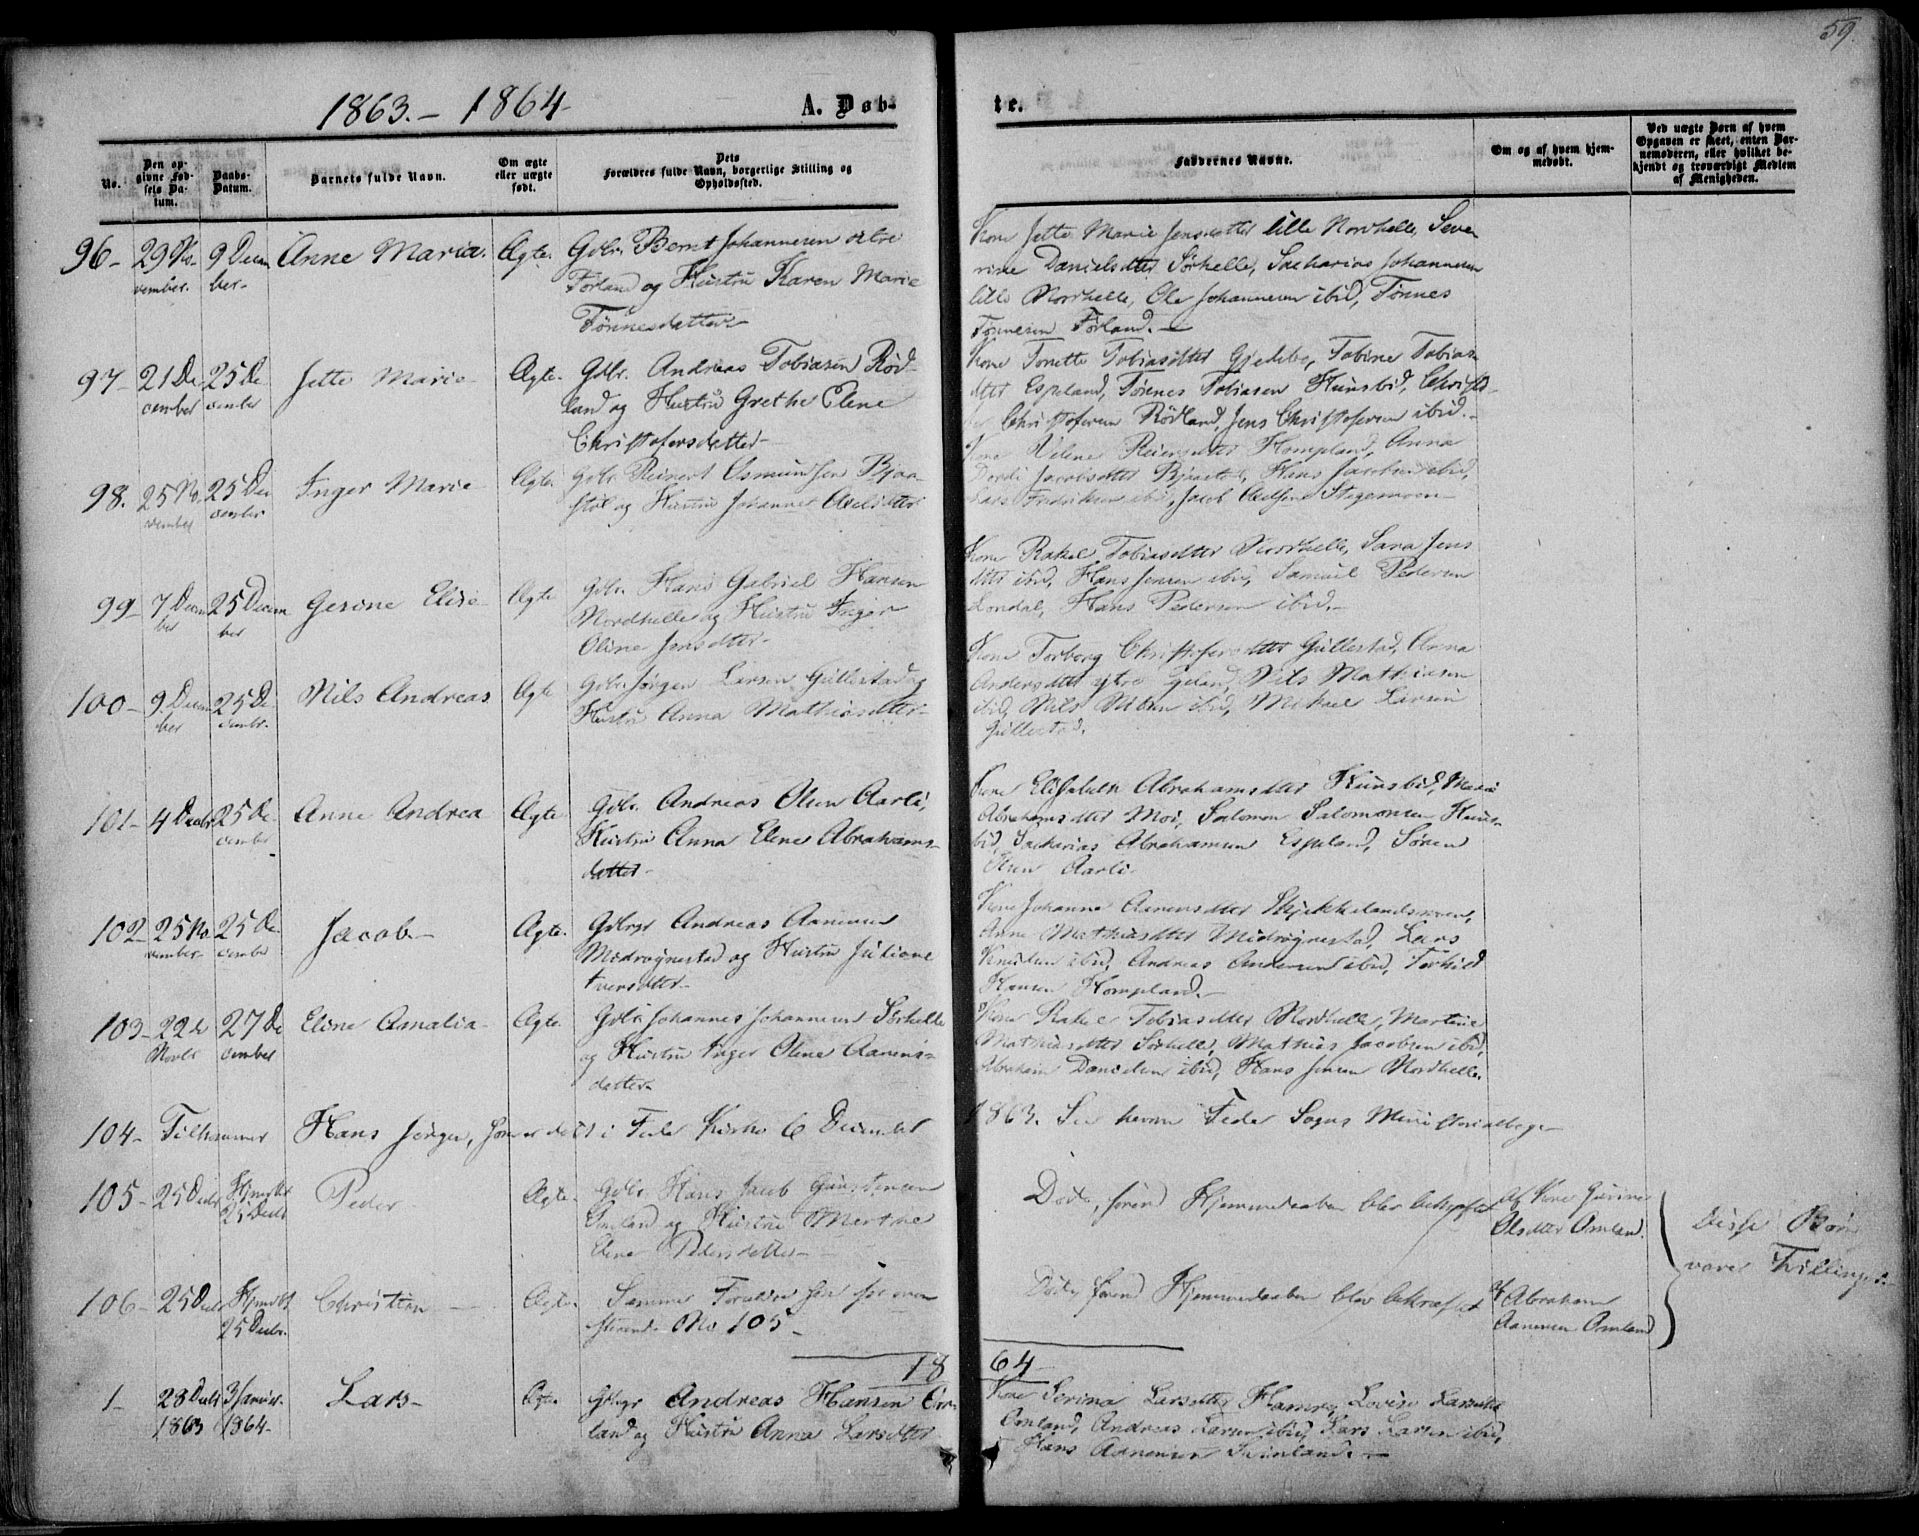 59.
1863. - 1864-
A. Døb-
te.
No.
Den op-
givne Fød-
sels Da-
tum.
Daabs-
Datum.
Barnets fulde Navn.
Om ægte
eller uægte
født.
Dets
Forældres fulde Navn, borgerlige Stilling og
Opholdssted.
Faddernes Navne.
Om og af hvem hjem-
medøbt.
Ved uægte Børn af hvem
Opgaven er skeet, enten Bar-
nemoderen, eller hvilket be-
kjendt og troværdigt Medlem
af Menigheden.
96- 29 No- 9 Decem Anne Maria. Ægte. Gdbr. Bernt Johannesen
vember. ber- Førland og Hustru Karen Marie
Tønnesdatter
Kone Jette Marie Jensdatter lille Nordhelle, Seve
rine Danielsdtter Sørhelle, Sacharias Johannesen
lille Nordhelle, Ole Johannesen ibid, Tønnes
Tønnesen Førland.
97- 21 De 25 De Jette Marie Ægte. Gdbr. Andreas Tobiasen Rød-
cember cember land og Hustru Grethe Elene
Christofersdatter-
Kone Tonette Tobiasdtter Gjedebo, Tobine Tobias
dtter Espeland, Tønnes Tobiasen Hunsbid, Christo-
Christofersen Rødland, Jens Christofersen ibid.-
98. 25 No 25 De Inger Marie Ægte Gdbr. Reinert Osmundsen Bjaa
vember cember støl og Hustru Johanne Axelsdtter
Kone Helene Hompland, Anna
Dorthe Jacobsdtter Hans Jacobsen ibid,
Lars Fredriksen ibid, Jacob Stegemoen
99- 7 Decem 25 Decem Gesine Elise Ægte Gdbr. Hans Gabriel Hansen
ber ber Nordhelle og Hustru Inger
Oline Jensdtter
Kone Rakel Tobiasdtter Nordhelle, Sara Jens
dtter ibid, Hans Jensen ibid, Samuel Pedersen
Londal, Hans Pedersen ibid.
100- 9 Decem 25 De Nils Andreas Ægte Gdbr. Jørgen Larsen Gullestad og
ber cember- Hustru Anna Mathiasdtter
Kone Torborg Christofersdtter Gullestad, Anna
Andersdtter ytre Nils Mathiasen
ibid, Nils ibid, Mikael Larsen
Gullestad.
101- 4 Decbr 25 De Anne Andrea Ægte Gdbr. Andreas Olsen Aarli,
cember Hustru Anna Elene Abrahams-
datter-
Kone Elisabeth Abrahamsdtter Hunsbid, Marie
Abrahamsdtter Moi, Salomon Salomonsen Huns-
bid, Sacharias Abrahamsen Espeland, Søren
Olsen Aarli
102- 25 No 25 De Jacob- Ægte. Gdbgr Andreas Aanensen
vember- cember Midrøgnestad og Hustru Juliane
Iversdtter
Kone Johanne Aanensdtter
Anne Mathiasdtter Midrøgnestad, Lars
Knudsen ibid, Andreas Andersen ibid, Torkild
Hansen Hompland.
103- 22 27 De Eline Amalia- Ægte. Gdbr Johannes Johannesen Sørhelle
Novbr cember og Hustru Inger Oline Aanens-
datter
Kone Rakel Tobiasdtter Nordhelle, Martine
Mathiasdtter Sørhelle, Mathias Jacobsen ibid,
Abraham Danielsen ibid, Hans Jensen Nordhelle.
104- Tilkommer Hans Jørgen, som er døbt i Feda Kirke 6 December
1863. See herom Feda Sogns Ministerialboge
105- 25 Decbr Hjmdbt Peder Ægte- Gdbr. Hans Jacob
25 Decbr Omland og Hustru Merthe
Elene Pedersdatter
Død, førend Hjemmedaaben blev bekræftet
Af Kone Gurine
Olsdtter Omland.
Disse Børn
vare Tvillinger
106- 25 Decbr Hjmdbt Christian Ægte- Samme Forældre som for oven
25 Decbr. staaende No 105-
Død førend Hjemmedaaben blev bekræftet
Af Abraham
Aanensen Omland
1864
1- 28 Decbr 3 Januar Lars- Ægte- Gdbgr Andreas Hansen Om-
1863 1864- land og Hustru Anna Larsdtter
Kone Serina Larsdtter Lovise Larsdtter
Omland, Andreas Larsen ibid, Lars Larsen ibid,
Hans Aanensen